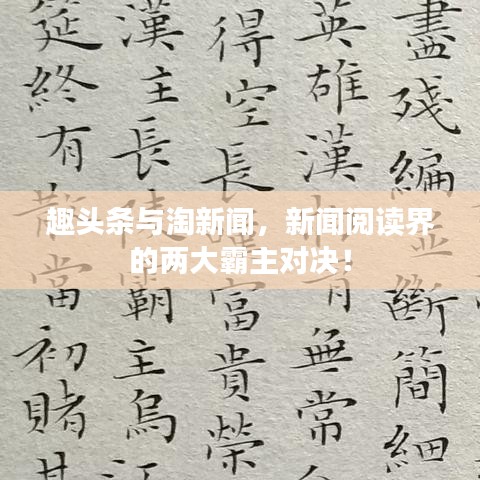 趣头条与淘新闻，新闻阅读界
的两大霸主对决！
盡殘編斷簡細
英雄漢無常
得空長富貴榮
漢主長霸主烏江
筵終有當初賭其